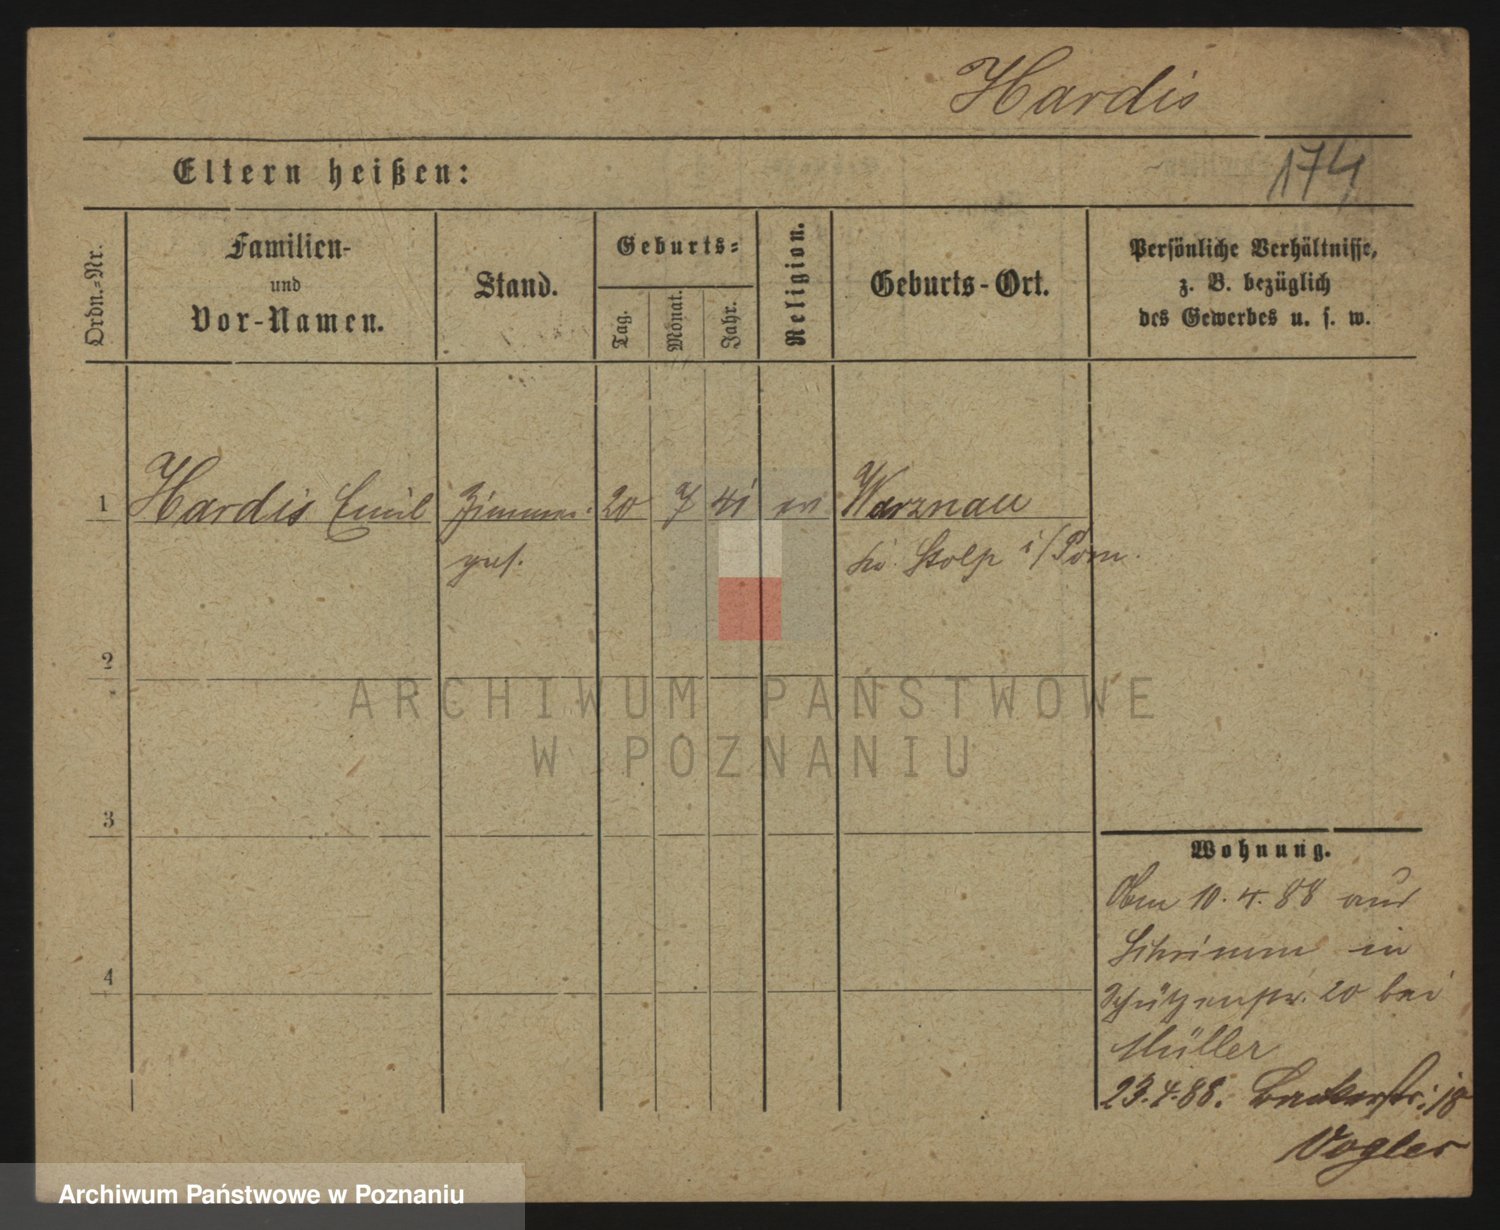 Hardis
174
Eltern heißen:
Ordn.-Nr.
Familien-
und
Vor-Namen.
Stand.
Geburts-
Tag.
Monat.
Jahr.
Religion.
Geburts-Ort.
Persönliche Verhältnisse,
z. B. bezüglich
des Gewerbes u. s. w.
1 Hardis Emil Zimmer- 20 7 41 ev Warznau
ges. Kr. Stolp i/Pom.
2
3
4
ARCHIWUM PAŃSTWOWE
W POZNANIU
Wohnung.
10.4.88 aus
Schrimm in
Schützenstr. 20 bei
Müller
23.4.88. Bäckerstr. 18
Vogler
Archiwum Państwowe w Poznaniu